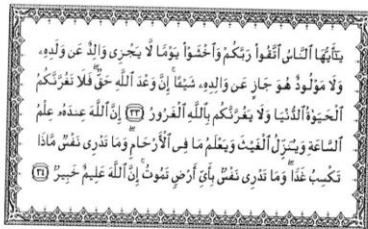 يَـٰٓأَيُّهَا ٱلنَّاسُ ٱتَّقُوا۟ رَبَّكُمْ وَٱخْشَوْا۟ يَوْمًا لَّا يَجْزِى وَالِدٌ عَن وَلَدِهِۦ
وَلَا مَوْلُودٌ هُوَ جَازٍ عَن وَالِدِهِۦ شَيْـًٔا إِنَّ وَعْدَ ٱللَّهِ حَقٌّ فَلَا تَغُرَّنَّكُمُ
ٱلْحَيَوٰةُ ٱلدُّنْيَا وَلَا يَغُرَّنَّكُم بِٱللَّهِ ٱلْغَرُورُ ٣٣ إِنَّ ٱللَّهَ عِندَهُۥ عِلْمُ
ٱلسَّاعَةِ وَيُنَزِّلُ ٱلْغَيْثَ وَيَعْلَمُ مَا فِى ٱلْأَرْحَامِ وَمَا تَدْرِى نَفْسٌ مَّاذَا
تَكْسِبُ غَدًا وَمَا تَدْرِى نَفْسٌۢ بِأَىِّ أَرْضٍ تَمُوتُ إِنَّ ٱللَّهَ عَلِيمٌ خَبِيرٌۢ ٣٤